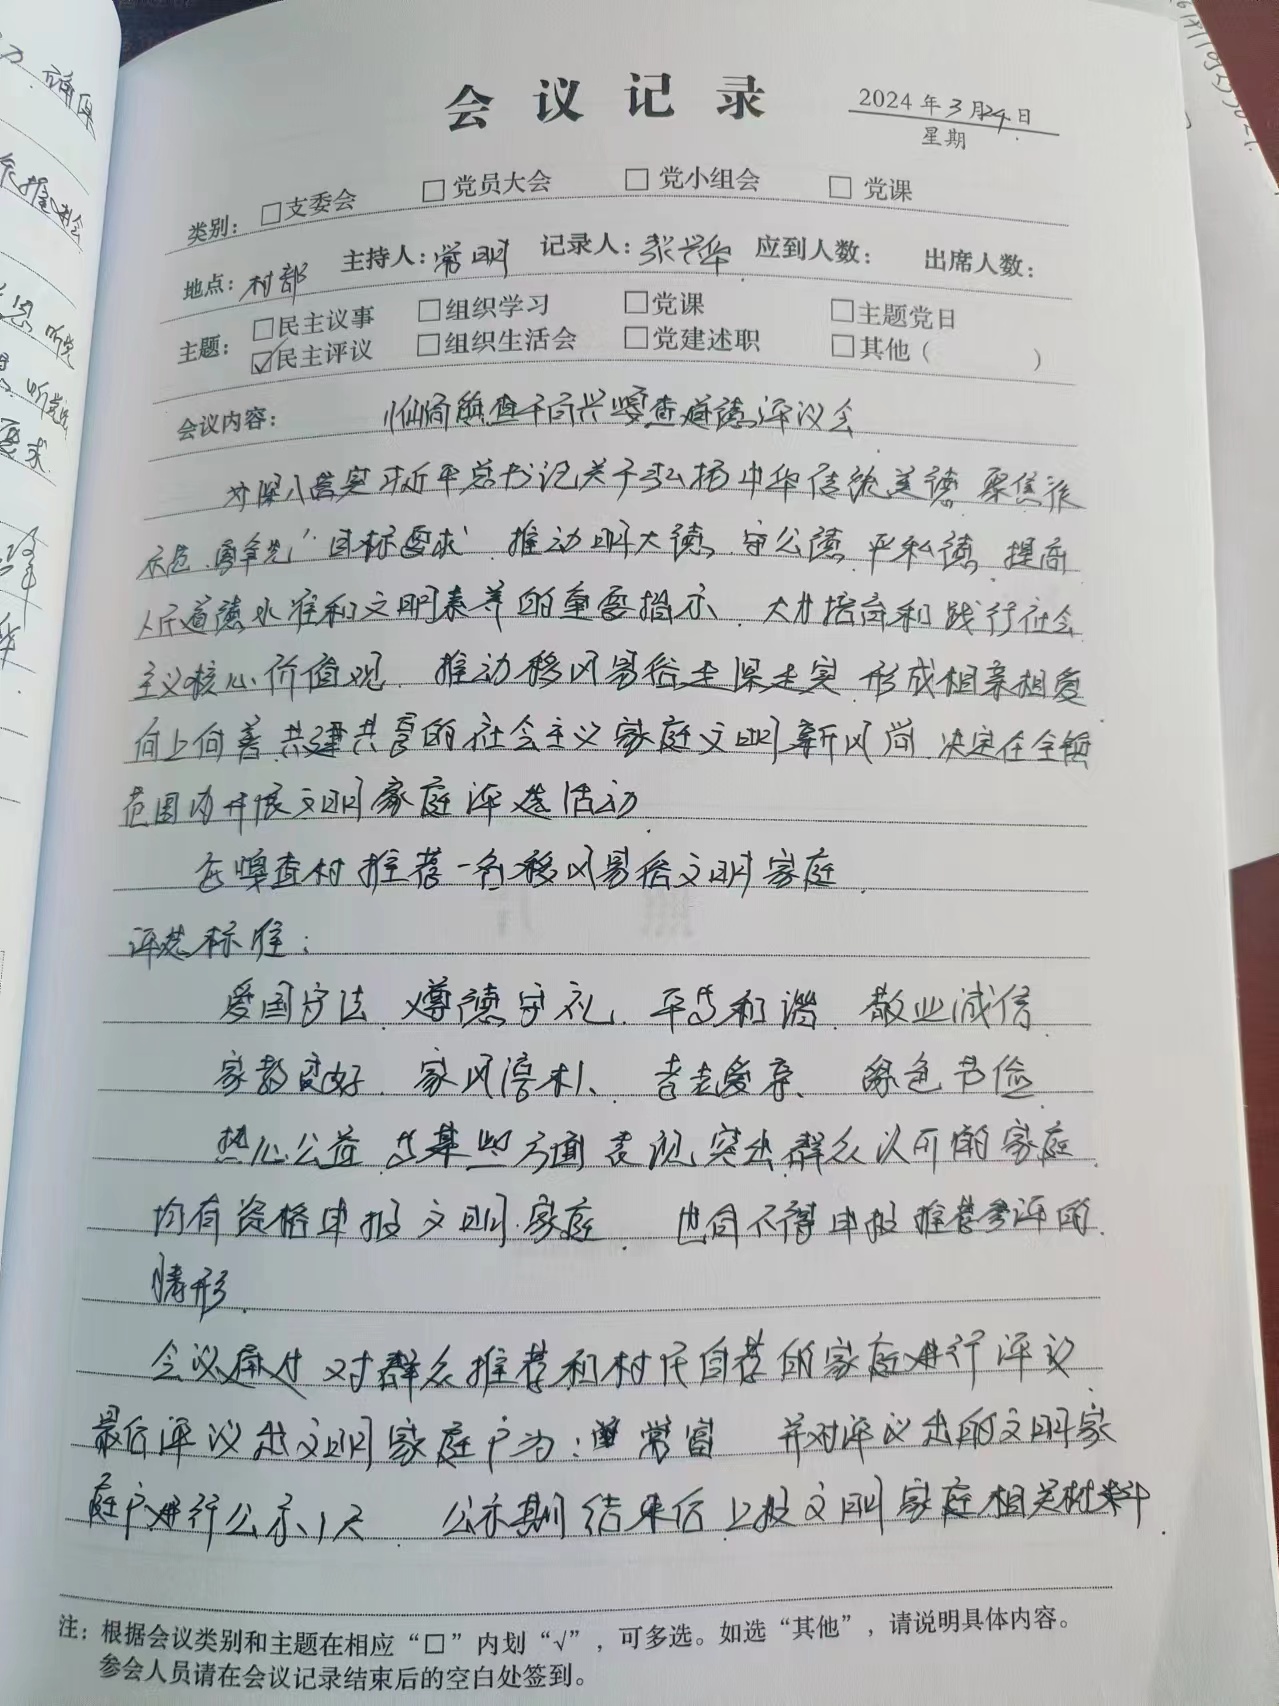 会议记录
2024年3月24日
星期
类别: □支委会 □党员大会 □党小组会 □党课
地点: 村部 主持人: 常明 记录人: 张兴华 应到人数: 出席人数:
主题: □民主议事 □组织学习 □党课 □主题党日
☑民主评议 □组织生活会 □党建述职 □其他( )
会议内容: 查道德评议会
为深入落实习近平总书记关于弘扬中华传统美德 聚焦"作
示范、勇争先"目标要求 推动明大德 守公德 严私德 提高
人民道德水准和文明素养的重要指示、大力培育和践行社会
主义核心价值观 推动移风易俗走深走实 形成相亲相爱
向上向善 共建共享的社会主义家庭文明新风尚 决定在全镇
范围内开展文明家庭评选活动
在 查村推荐一名移风易俗文明家庭
评选标准:
爱国守法 遵德守礼、平等和谐 敬业诚信
家教良好、家风淳朴、孝老爱亲、绿色节俭
热心公益 等某些方面表现突出群众认可的家庭
均有资格申报文明家庭 不得申报推荐参评的
情形
会议 对群众推荐和村民自荐的家庭进行评议
最后评议出文明家庭户为: 常富 并对评议出的文明家
庭户进行公示1天 公示期结束后上报文明家庭相关材料
注: 根据会议类别和主题在相应"□"内划"√",可多选。如选"其他",请说明具体内容。
参会人员请在会议记录结束后的空白处签到。